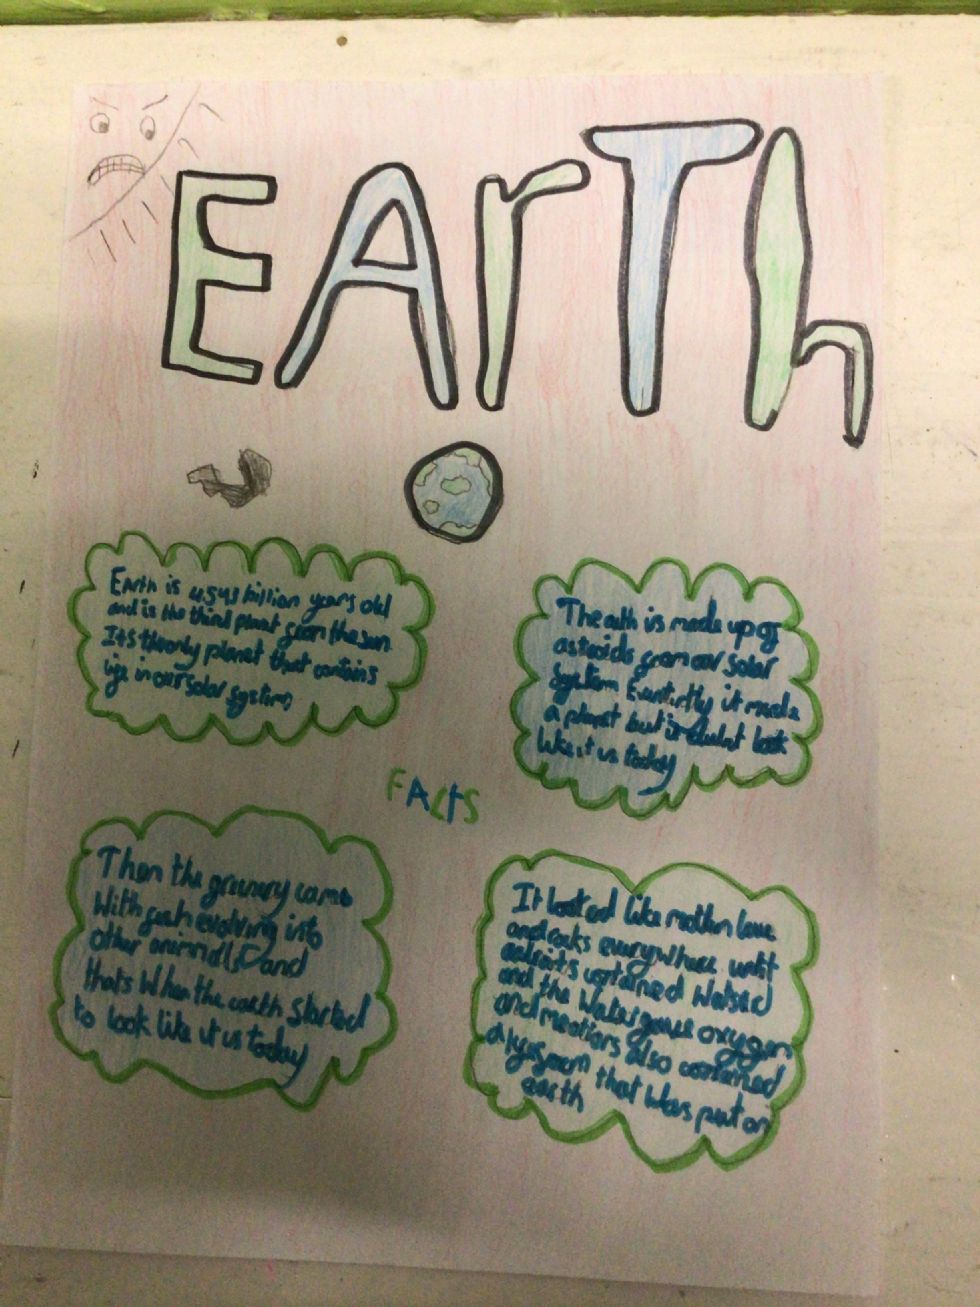 EArTh
Earth is 4.541 billion years old
and is the third planet from the sun
Its the only planet that contains
life in our solar system
The eath is made up of
astroids from our solar
system Eventirtly it made a
a planet but it didnt look
like it us today
FActs
Then the greenery came
With fish evolving into
other animals and
thats When the earth started
to look like it us today
It looked like molten lava
and rocks everywhere until
astroids contained
and the Water gave oxygen
and meteors also contained
that was put on
earth